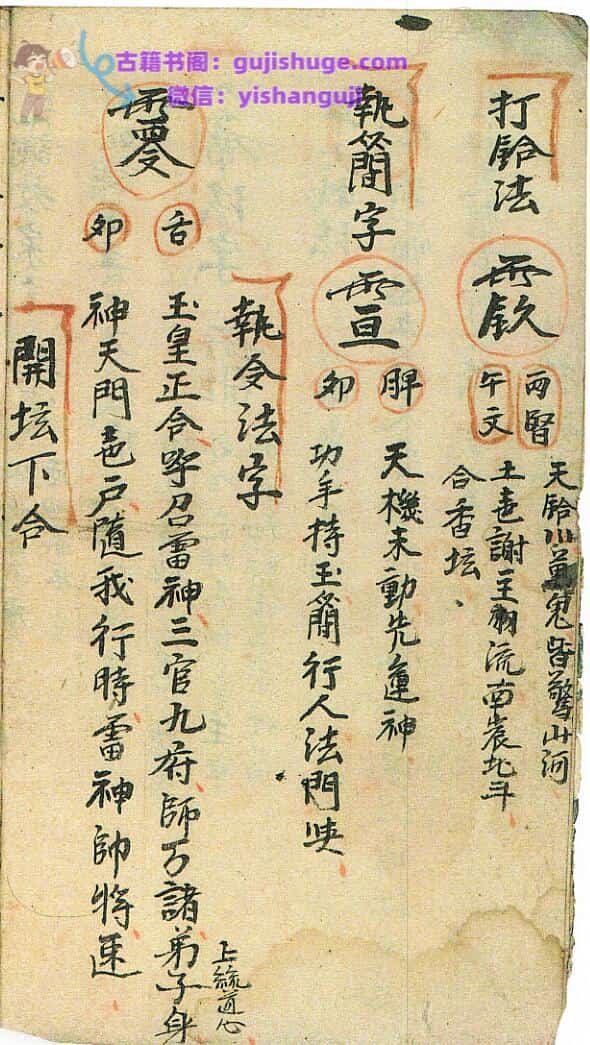 古籍书阁：gujishuge.com
微信：yishanguji
打鈴法
两腎
午文
天鈴川萬鬼皆驚山河
土地謝主翱流南宸北斗
合香坛
執簡字
脾
卯
天機未動先運神
功手持玉簡行人法門哄
執令法字
舌
卯
玉皇正令呼召雷神三官九府師万諸弟子身
上統道心
神天門地戶随我行時雷神帥将速
開坛下令